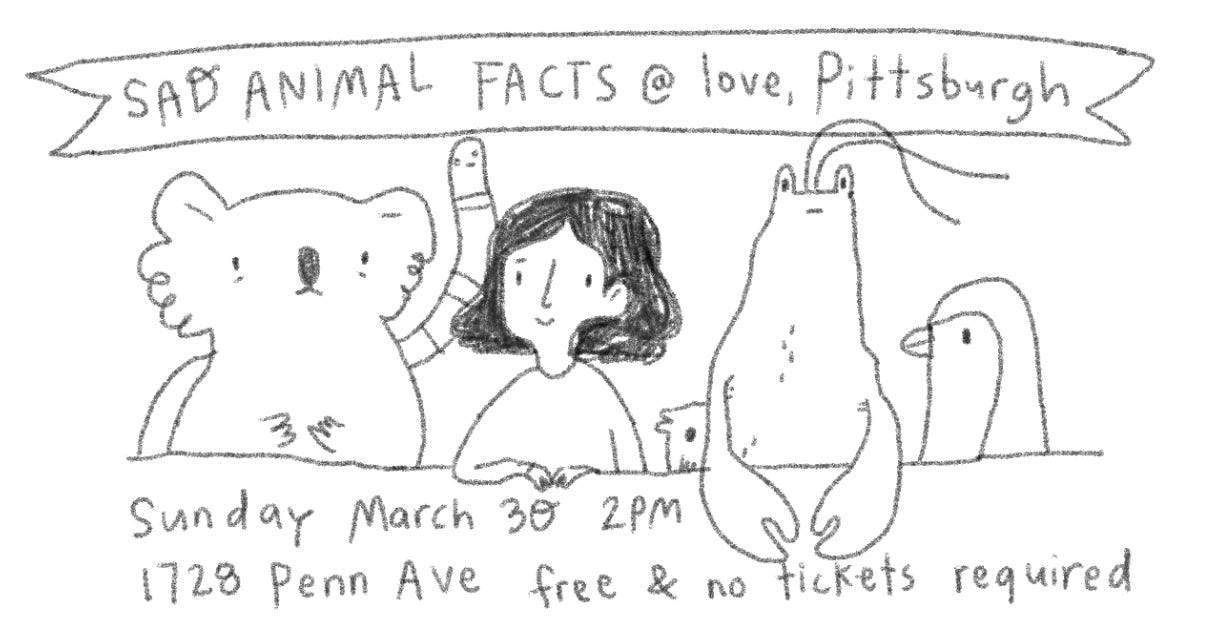 SAD ANIMAL FACTS @ love, Pittsburgh
Sunday March 30 2PM
1728 Penn Ave free & no tickets required